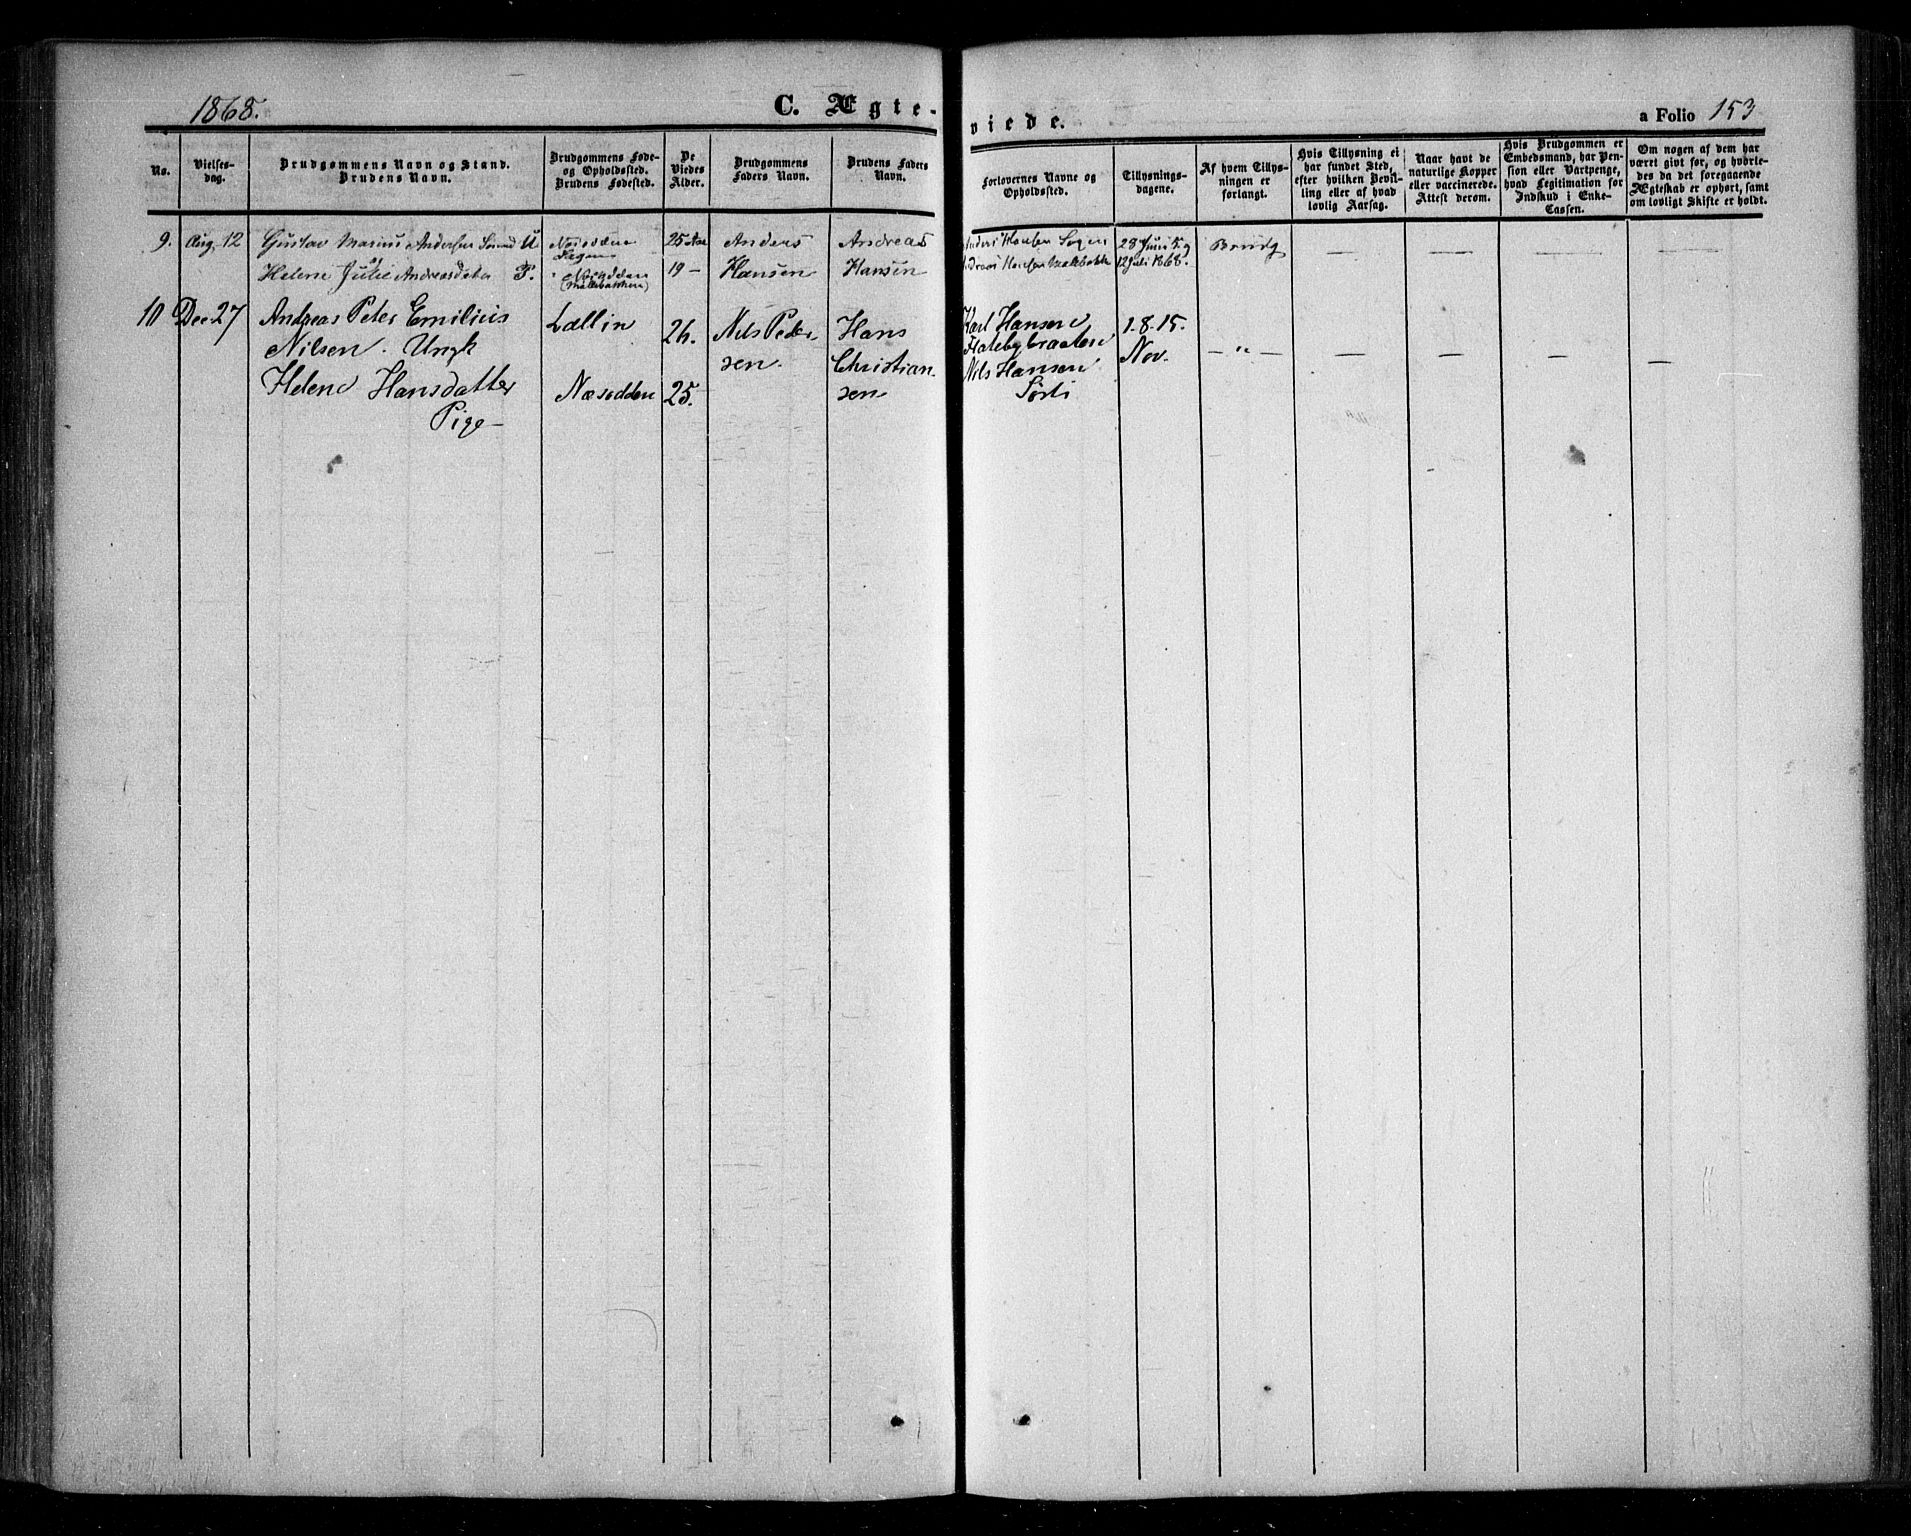 1868.
C. Ægte-
viede.
a Folio 153
No.
Vielses-
dag.
Brudgommens Navn og Stand.
Brudens Navn.
Brudgommens Føde-
og Opholdssted.
Brudens Fødested.
De
Viedes
Alder.
Brudgommens
Faders Navn.
Brudens Faders
Navn.
Forlovernes Navne og
Opholdssted.
Tillysnings-
dagene.
Af hvem Tillys-
ningen er
forlangt.
Hvis Tillysning ei
har fundet Sted,
efter hvilken Bevil-
ling eller af hvad
lovlig Aarsag.
Naar havt de
naturlige Kopper
eller vaccinerede.
Attest derom.
Hvis Brudgommen er
Embedsmand, har Pen-
sion eller Vartpenge,
hvad Legitimation for
Indskud i Enke-
Cassen.
Om nogen af dem har
været givt før, og hvorle-
des da det foregaaende
Ægteskab er ophørt, samt
om lovligt Skifte er holdt.
9. Aug. 12 Gustav Marius Andersen U 25 Anders Andreas Hansen 28 Juni 5 Brudg — — — —
Helene Julie Andreasdatter P. Næsodden 19 — Hansen Hansen 12 Juli 1868.
10 Dec 27 Andreas Peter Emilius Nils Peder- Hans Karl Hansen 1. 8. 15.
Nilsen. Ungk 26. sen. Christian- Nov. — " — — — — —
Helene Hansdatter Næsodden 25. sen Nils Hansen
Pige —